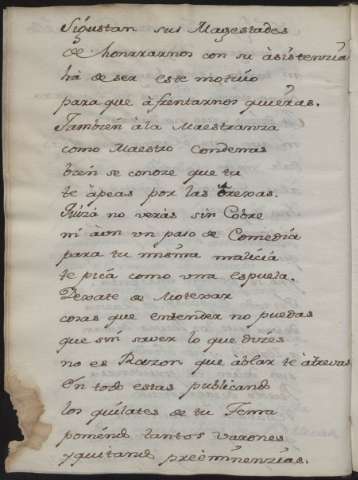 Si gustan sus Magestades
de honrrarnos con su àsistenzia
há de ser este motiuo
para que àfrentarnos quieras.
Tambien àla Maestranza
como Maestro Condenas
bien se conoze que tu
te àpeas por las orexas.
no verás sin Cobre
ni àun un paso de Comedia
para tu misma malicia
te pica como una espuela.
Dexate de Motexar
cosas que entender no puedas
que sin saver lo que dizes
no es Razon que àblar te àtrevas
En todo estas publicando
los quilates de tu Tema
poniendo tantos varones
y quitando preeminenzias.